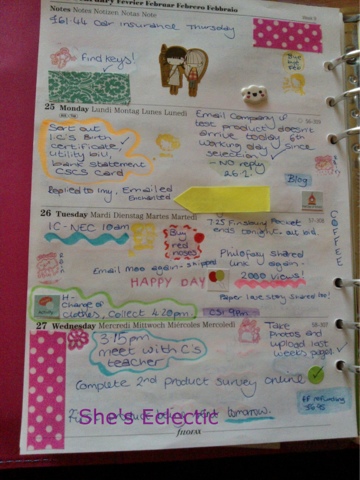 February Février Februar Febrero Febbraio
Notes Notes Notizen Notas Note
£61.44 Car insurance Thursday
Find Keys!
25 Monday Lundi Montag Lunes Lunedì
Sort out
I.C's Birth
certificate,
utility bill,
bank statement
CSCS Card
Email Company if
test product doesn't
arrive today 6th
working day since
selection
- NO reply
26.2
Blog
Replied to Imy, Emailed
Enchanted
26 Tuesday Mardi Dienstag Martes Martedì
IC-NEC 10am
Buy
red
noses
7.25 Finsbury Pocket
ends tonight, out bid.
Philofaxy shared
link again.
Email moo again - shipped
2000 views!
HAPPY DAY
COFFEE
H-
Change of
clothes, Collect 4.20pm
Paper lovestory shared too!
CSI 9pm
27 Wednesday Mercredi Mittwoch Miércoles Mercoledì
3.15pm
meet with C's
teacher
Take
Photos and
upload last
weeks pages.
Complete 2nd product survey online
tomorrow.
She's Eclectic
filofax